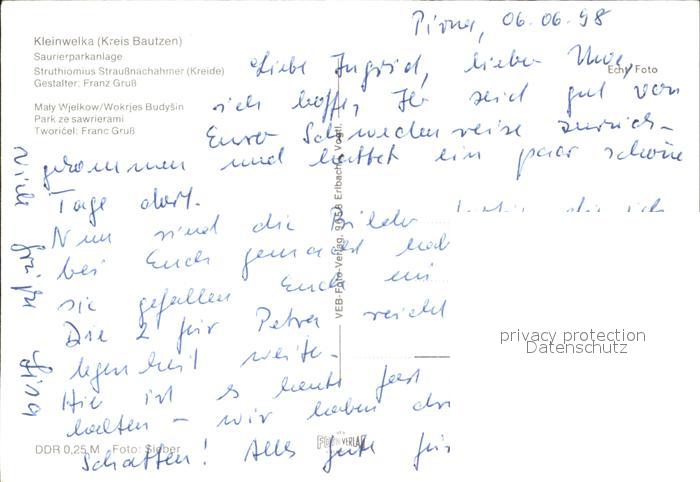 Kleinwelka (Kreis Bautzen)
Saurierparkanlage
Struthiomius Straußnachahmer (Kreide)
Gestalter: Franz Gruß
Mały Wjelkow/Wokrjes Budyšin
Park ze sawrierami
Tworićel: Franc Gruß
Echt Foto
Pirna, 06.06.98
Liebe Ingrid, lieber Uwe,
ich hoffe, Ihr seid gut von
Eurer Schwedenreise zurück-
gekommen und hattet ein paar schöne
Tage dort.
Nun sind die Bilder die ich
bei Euch gemacht hab
sie gefallen Euch ein
Die 2 für Petra reicht
legenheit weiter.
Hier ist es heute fast
halten – wir haben
Schatten! Alles Gute für
viele Grüße
VEB-Foto-Verlag, 9658 Erlbach i. Vogtl.
privacy protection
Datenschutz
FOTO VERLAG
DDR 0,25 M Foto: Sieber